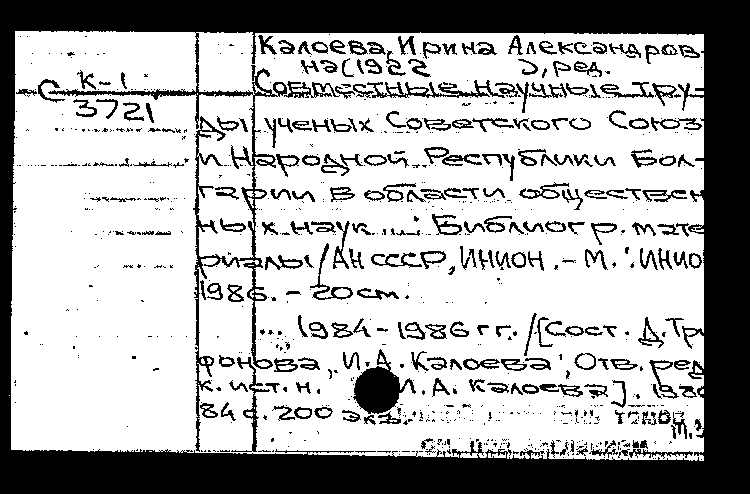 Калоева, Ирина Александров-
на (1922 ), ред.
С К-1
3721
Совместные научные тру-
ды ученых Советского Союз
и Народной Республики Бол-
гарии в области обществен
ных наук ... : Библиогр. мате
риалы / АН СССР, ИНИОН. - М. : ИНИО
1986. - 20 см.
... 1984-1986 гг. / [Сост. Д. Три
фонова, И.А. Калоева ; Отв. ред
к. ист. н. И. А. Калоева]. 198
84 с. 200 экз. томов
см. под названием